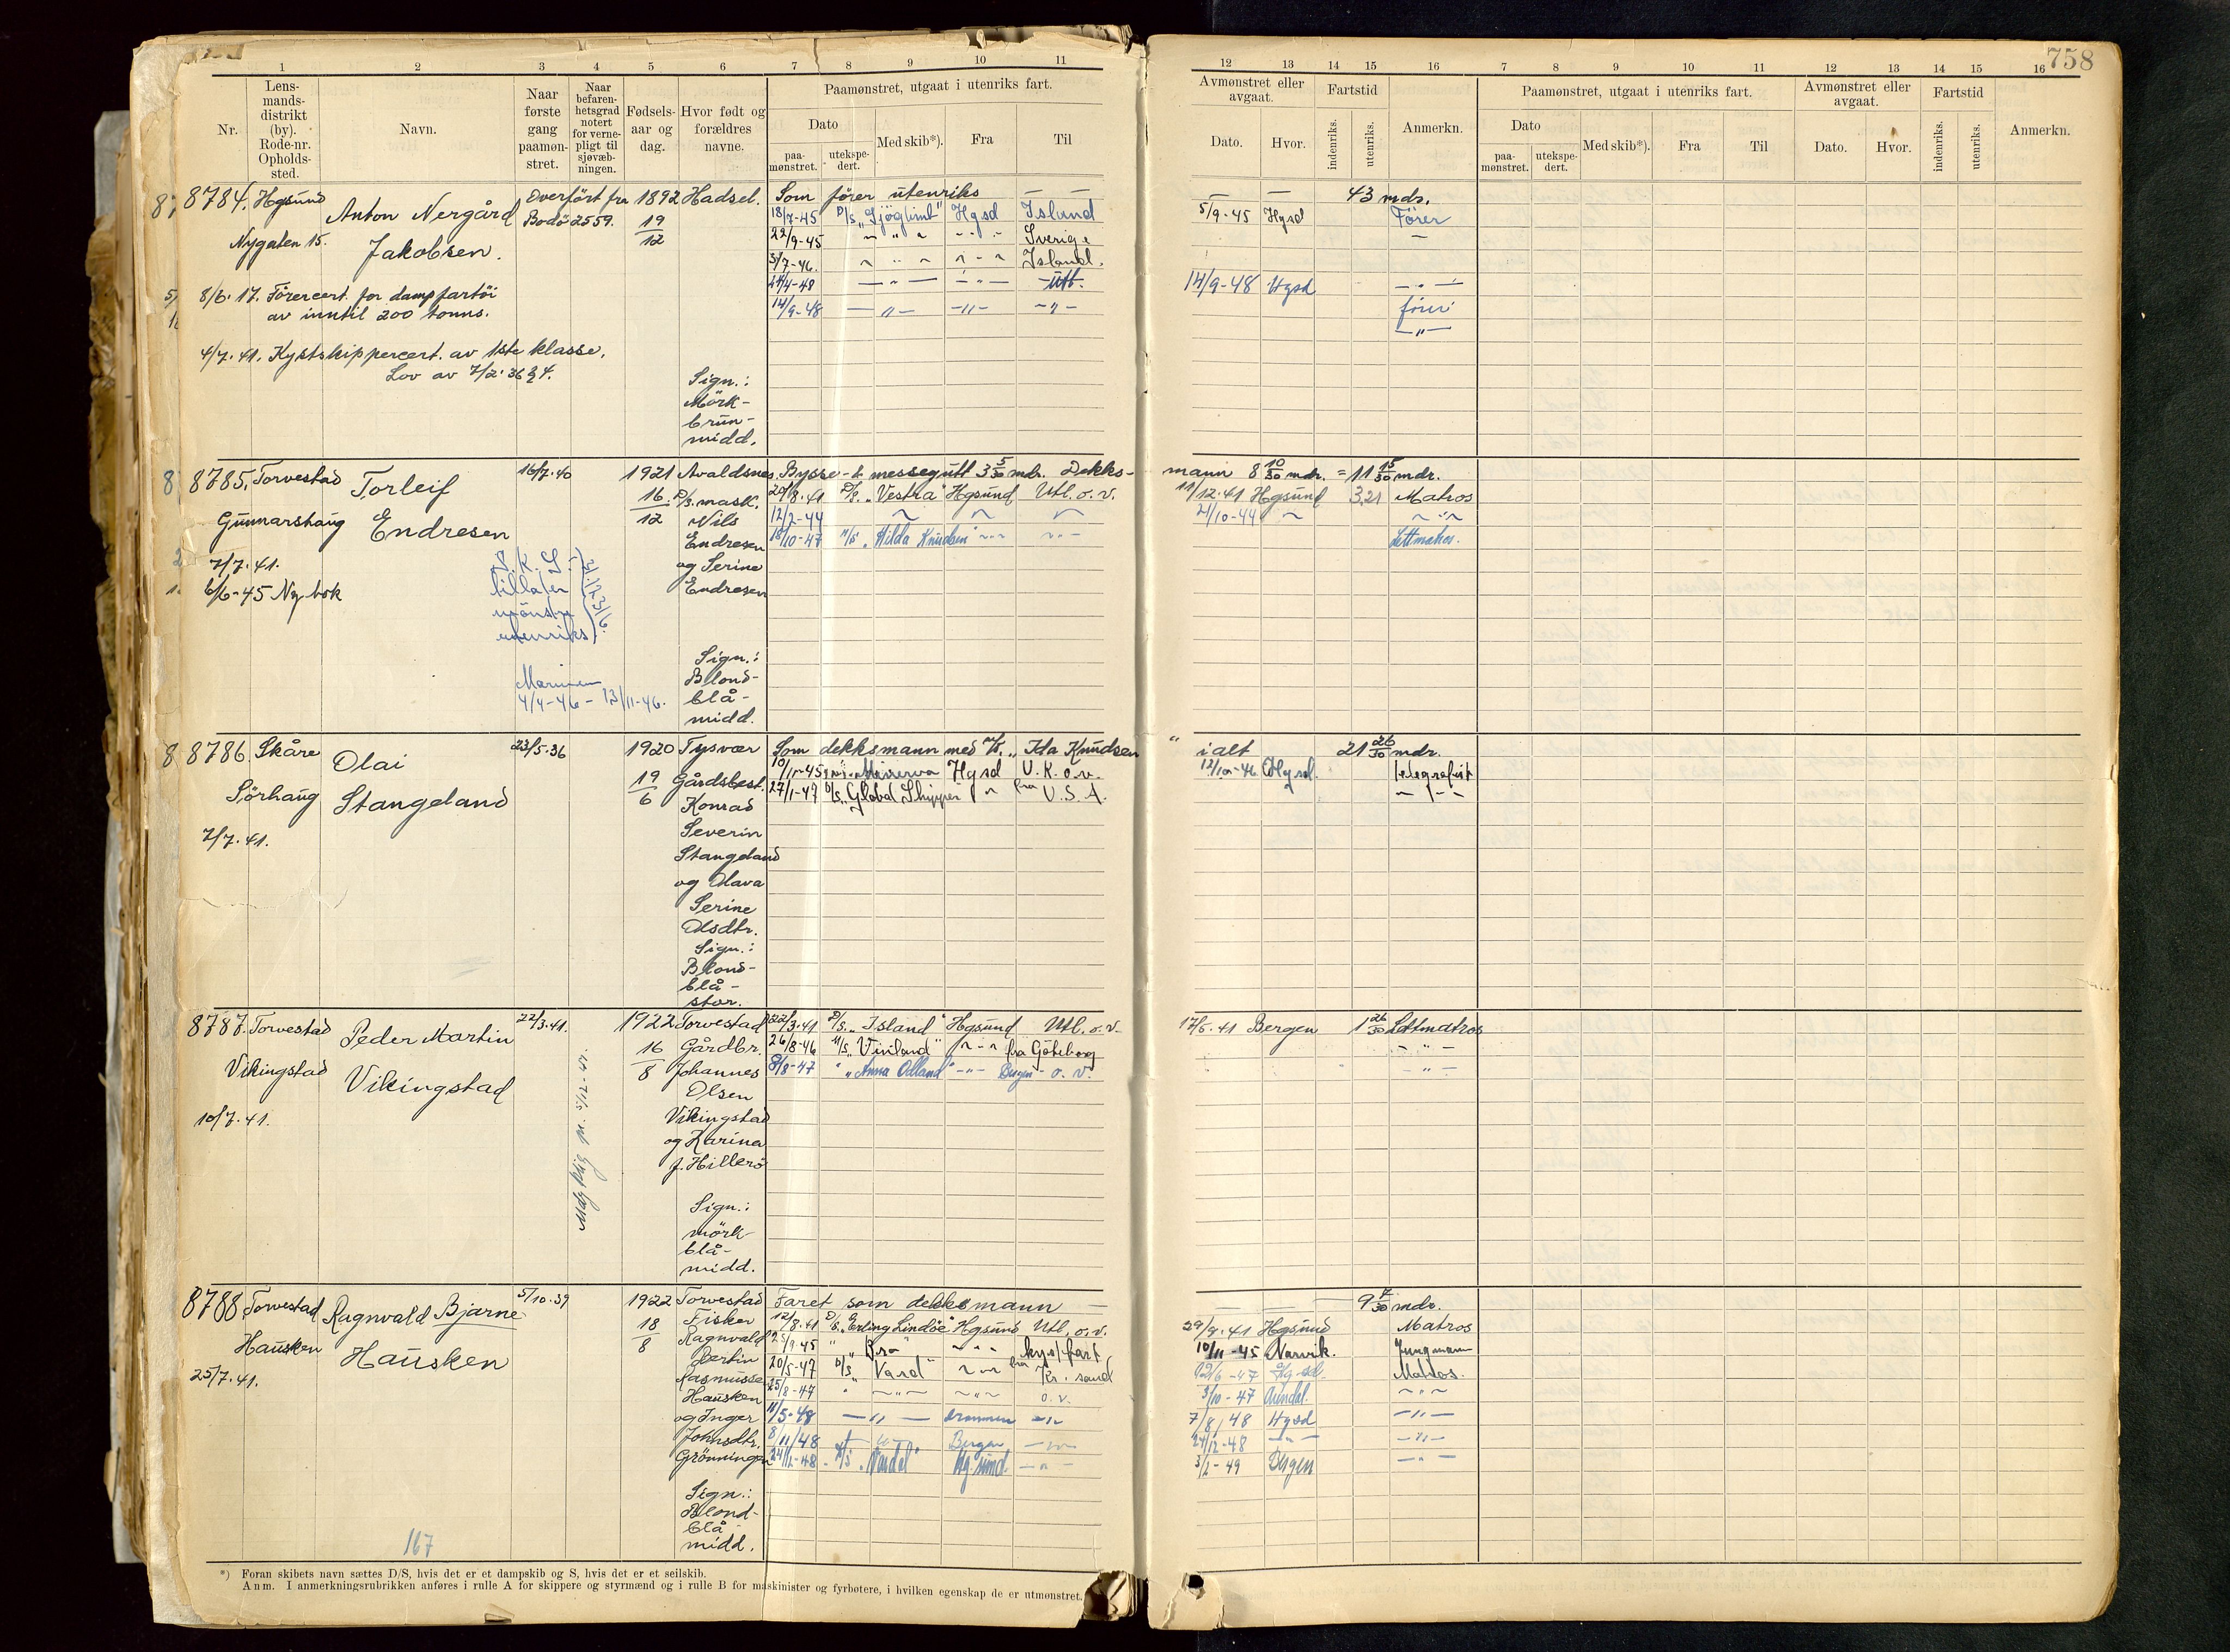 758
1 2 3 4 5 6 7 8 9 10 11
12 13 14 15 16 7 8 9 10 11 12 13 14 15 16
Nr.
Lens-
mands-
distrikt
(by).
Rode-nr.
Opholds-
sted.
Navn.
Naar
første
gang
paamøn-
stret.
Naar
befaren-
hetsgrad
notert
for verne-
pligt til
sjøvæb-
ningen.
Fødsels-
aar og
dag.
Hvor født og
forældres
navne.
Paamønstret, utgaat i utenriks fart.
Dato
paa-
mønstret.
utekspe-
dert.
Med skib*).
Fra
Til
Avmønstret eller
avgaat.
Dato.
Hvor.
Fartstid
indenriks.
utenriks.
Anmerkn.
Paamønstret, utgaat i utenriks fart.
Dato
paa-
mønstret.
utekspe-
dert.
Med skib*).
Fra
Til
Avmønstret eller
avgaat.
Dato.
Hvor.
Fartstid
indenriks.
utenriks.
Anmerkn.
8784. Hgsund Overført fra 1892 Hadsel. Som fører utenriks — — — — 43 mdr.
Anton Nergård Bodö 2559. 19/12 18/7-45 D/S „Sjøglimt" Hgsd Island 5/9-45 Hgsd Fører
Nygaten 15. Jakobsen. 22/9-45 " Sverige
3/7-46. " Island.
8/6.17. Førercert. for dampfartøi 24/4-48 — " — — " — Utl. 14/9-48 Hgsd — " —
av inntil 200 tonns. 14/9-48 — " — — " — — " — fører
— " —
4/7.41. Kystskippercert. av 1ste klasse.
Lov av 7/2.36 § 4.
Sign.:
Mörk-
brun-
midd.
8785. Torvestad Torleif 16/7.40 1921 Avaldsnes. Bysse- & messegutt 3 5/30 mdr. Dekks- mann 8 10/30 mdr. = 11 15/30 mdr.
16/12 D/S. mask. 20/8.41 D/S. „Vestra" Hgsund Utl. o. v. 11/12.41 Hgsund 3,21 Matros
Gunnarshaug Endresen Nils 12/2-44 21/10-44
Endresen 18/10-47 M/S „Hilda Knudsen" Lettmatros.
7/7.41. og Serine
6/6-45 Ny bok Endresen
S. K. S.
tillater
mønstre
utenriks
Marinen
4/4-46 - 13/11-46.
Sign.:
Blond-
blå-
midd.
8786. Skåre Olai 23/5.36 1920 Tysvær Som dekksmann med M/S. „Ida Knudsen" ialt 21 26/30 mdr.
Sørhaug Stangeland 19/6 Gårdsbest. Minerva Hgsd U. K. o. v. Hgsd. telegrafist
Konrad 27/1-47 D/S „Global Shipper " fra U. S. A.
7/7.41. Severin
Stangeland
og Olava
Serine
Olsdtr.
Sign.:
Blond-
blå-
stor.
8787. Torvestad Peder Martin 22/3.41. 1922 Torvestad 22/3.41 D/S. „Island" Hgsund Utl. o. v. 17/5.41 Bergen 1 26/30 Lettmatros
Vikingstad Vikingstad 16/8 Gårdbr. 26/8-46 M/S „Vinland" fra Göteborg — " —
Johannes 8/8-47 " „Anna Odland" — " — Bergen o. v. — " —
10/7.41. Olsen
Vikingstad
og Karina
f. Hillerö
Sign.:
mörk-
blå-
midd.
8788. Torvestad Ragnvald Bjarne 5/10.39 1922 Torvestad Faret som dekksmann — — — 9 4/30 mdr.
Hausken Hausken 18/8 Fisker 12/8.41 D/S. „Erling Lindöe" Hgsund Utl. o. v. 29/9.41 Hgsund Matros
25/7.41. Ragnvald kyst fart 10/11-45 Narvik. Jungmann
Bertin 20/5-47 D/S „Vard" fra Kr. sand Matros.
Rasmussen 25/8-47 " o. v. 3/10-47 Arendal.
Hausken 11/5-48 — " — Drammen — " — 7/8/48 Hgsd — " —
og Inger 8/11/48 Bergen 24/12-48 — " —
Johnsdtr. 24/12-48 Hg.sund. 3/2-49 Bergen — " —
Grönningen
Sign.:
Blond-
blå-
midd.
167
*) Foran skibets navn sættes D/S, hvis det er et dampskib og S, hvis det er et seilskib.
Anm. I anmerkningsrubrikken anføres i rulle A for skippere og styrmænd og i rulle B for maskinister og fyrbøtere, i hvilken egenskap de er utmønstret.